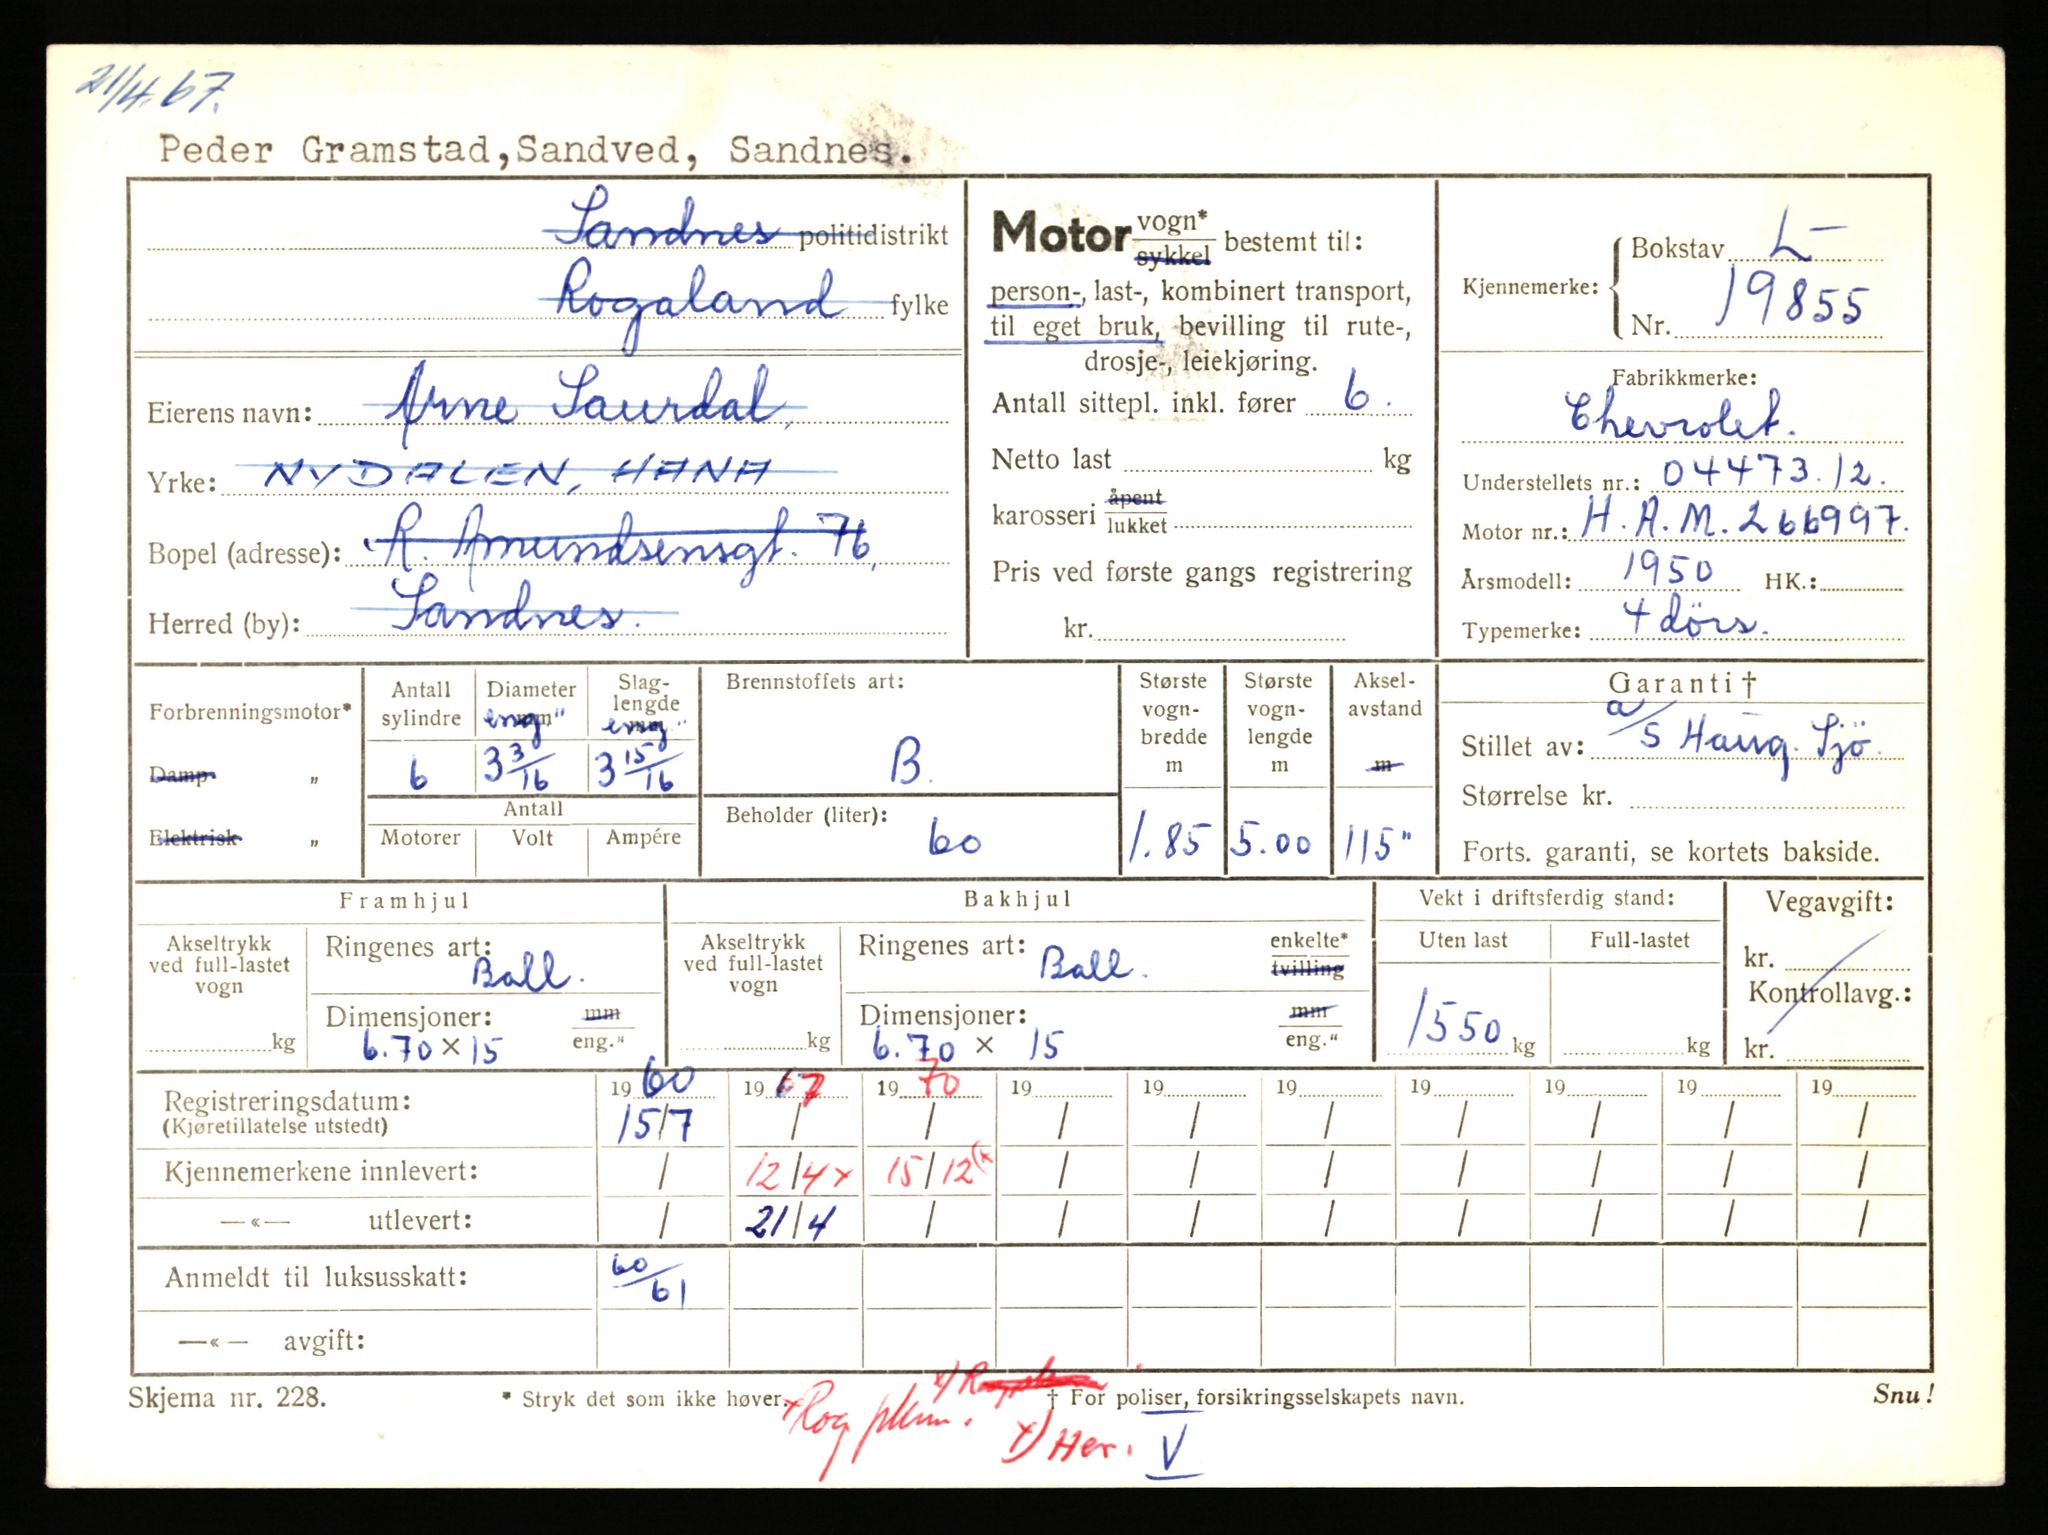 21/4.67.
Peder Gramstad,Sandved, Sandnes.
Sandnes politidistrikt
Rogaland fylke
Eierens navn: Arne Saurdal,
Yrke: NYDALEN, HANA
Bopel (adresse): R. Amundsensgt. 76,
Herred (by): Sandnes.
Motor vogn* sykkel bestemt til:
person-, last-, kombinert transport,
til eget bruk, bevilling til rute-,
drosje-, leiekjøring.
Antall sittepl. inkl. fører 6.
Netto last kg
karosseri åpent lukket
Pris ved første gangs registrering
kr.
Kjennemerke: Bokstav L-
Nr. 19855
Fabrikkmerke:
Chevrolet.
Understellets nr.: 04473.12.
Motor nr.: H.A.M.266997.
Årsmodell: 1950 HK.:
Typemerke: 4 dørs.
Forbrenningsmotor*
Damp "
Elektrisk "
Antall sylindre 6
Diameter mm eng" 3 3/16
Slaglengde mm eng" 3 15/16
Antall
Motorer Volt Ampére
Brennstoffets art:
B.
Beholder (liter):
60
Største vognbredde m 1.85
Største vognlengde m 5.00
Akselavstand m 115"
Garanti †
Stillet av: a/s Haug. Sjö.
Størrelse kr.
Forts. garanti, se kortets bakside.
Framhjul
Akseltrykk ved full-lastet vogn
kg
Ringenes art: Ball.
Dimensjoner: mm
6.70 × 15 eng."
Bakhjul
Akseltrykk ved full-lastet vogn
kg
Ringenes art: Ball. enkelte* tvilling
Dimensjoner: mm
6.70 × 15 eng."
Vekt i driftsferdig stand:
Uten last Full-lastet
1550 kg kg
Vegavgift:
kr.
Kontrollavg.:
kr.
1960 1967 1970 19 19 19 19 19 19 19
Registreringsdatum: 15/7 / / / / / / / / /
(Kjøretillatelse utstedt)
Kjennemerkene innlevert: / 12/4x 15/12(x / / / / / / /
—«— utlevert: / 21/4 / / / / / / / /
Anmeldt til luksusskatt: 60/61
—«— avgift:
Skjema nr. 228. * Stryk det som ikke høver. † For poliser, forsikringsselskapets navn. Snu!
x Rog
x) Her. V